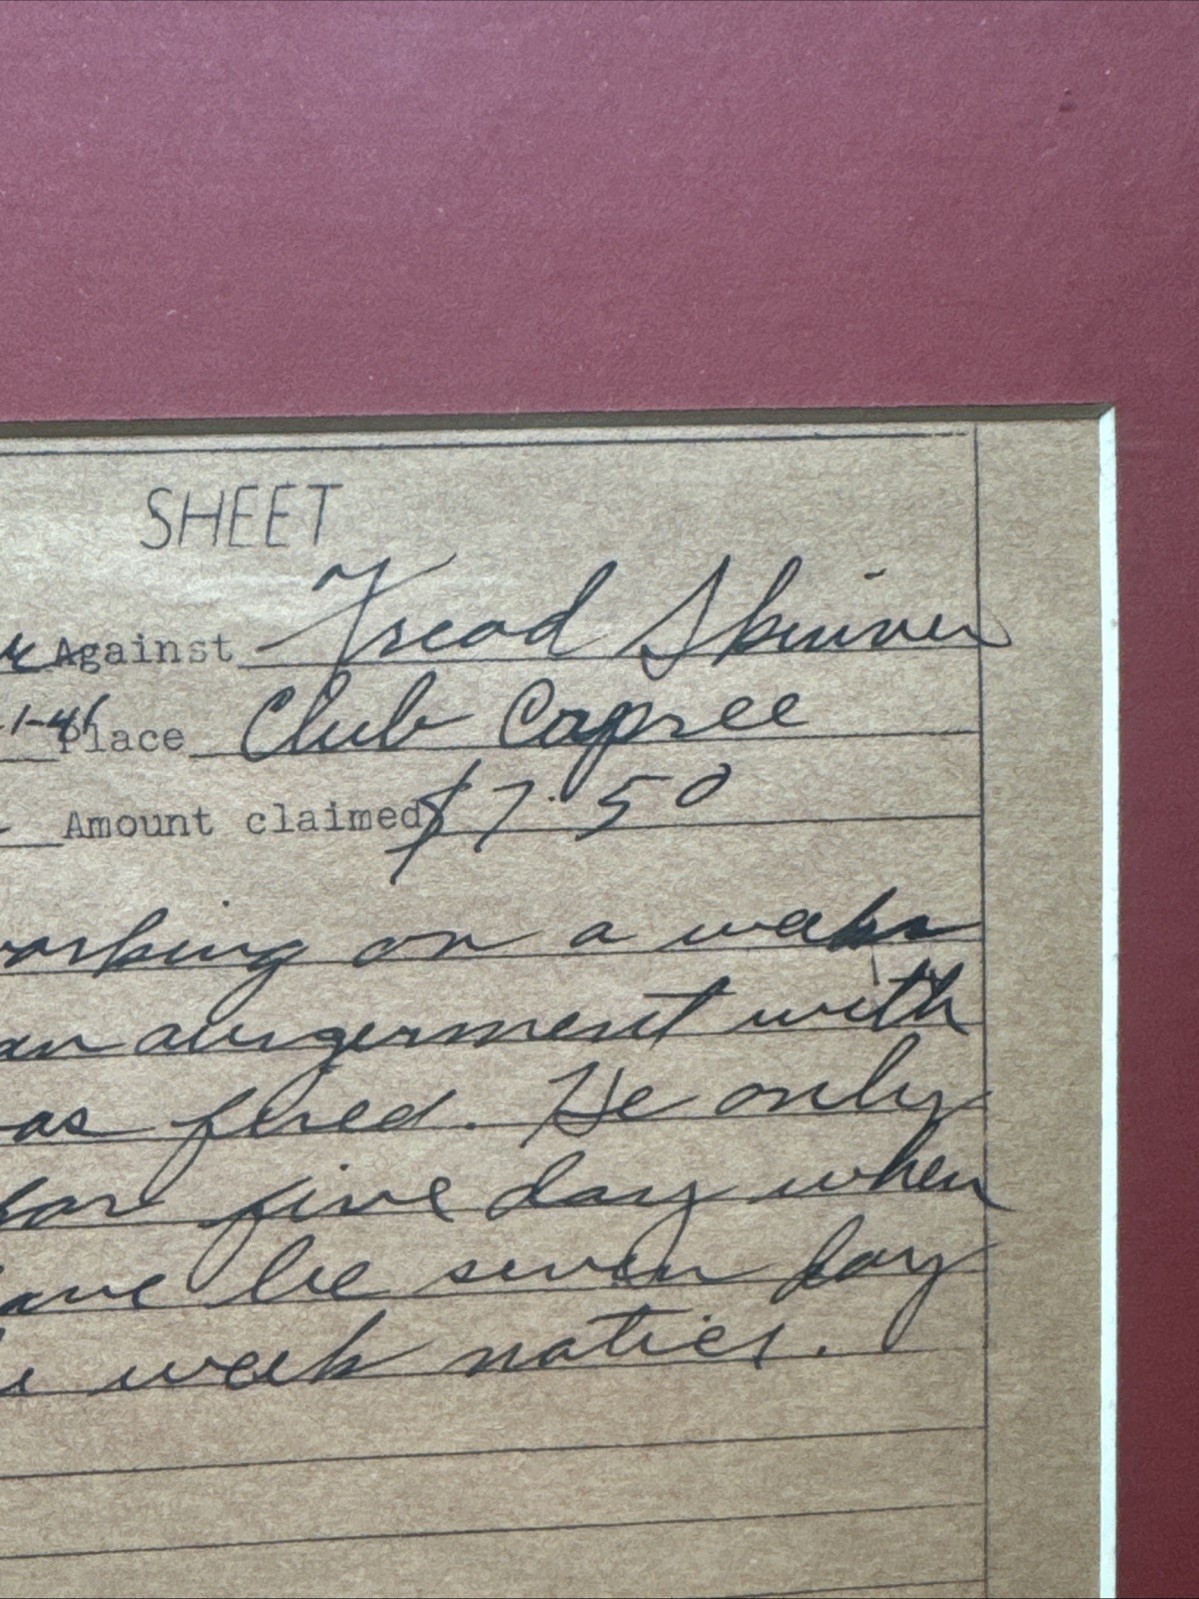 SHEET
Against Freod Skinner
-1-46 Place Club Capree
Amount claimed $7.50
working on a weeks
an aurgerment with
as fired. He only
for five day when
ave be seven day
week notics.